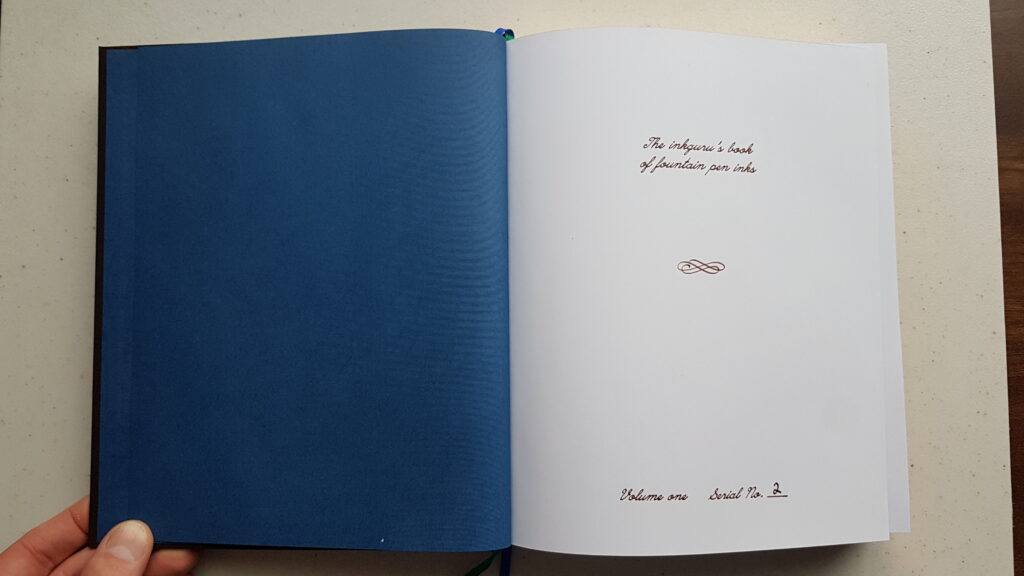 The inkguru's book
of fountain pen inks
Volume one Serial No. 2